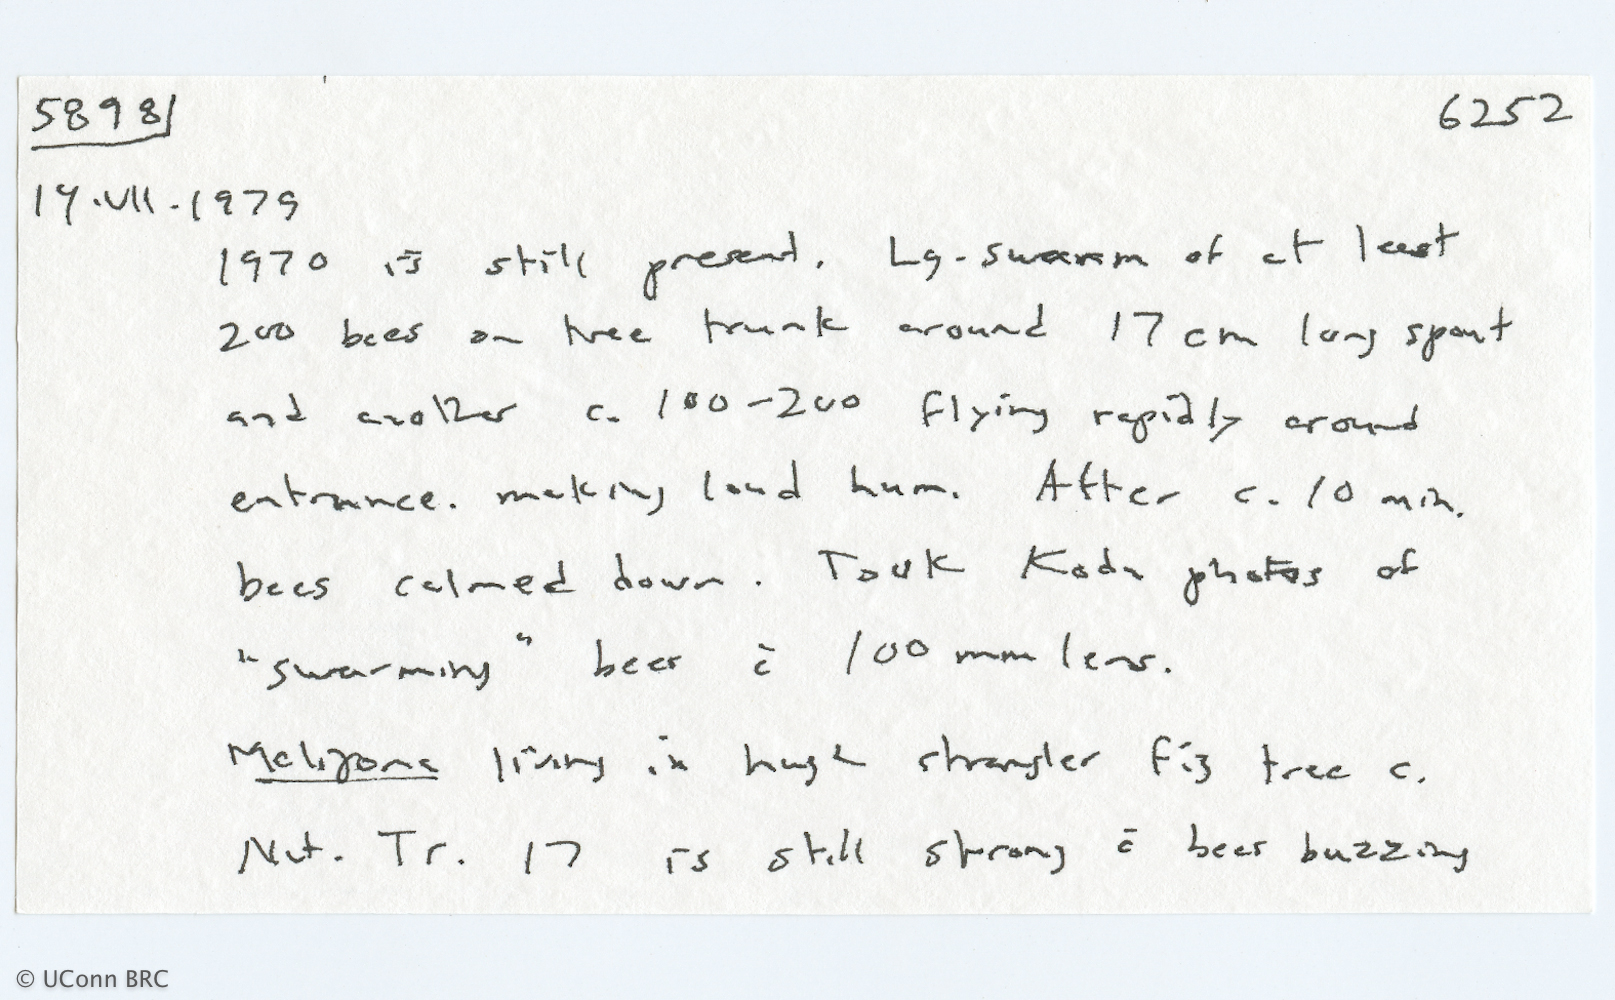 5898 6252
14.VII.1979
1970 is still present. Lg. swarm of at least
200 bees on tree trunk around 17 cm long spout
and another c. 100-200 flying rapidly around
entrance. making loud hum. After c. 10 min.
bees calmed down. Took Koda photos of
"swarming" bees c̄ 100 mm lens.
Melipona living in hugh strangler fig tree c.
Nut. Tr. 17 is still strong c̄ bees buzzing
© UConn BRC